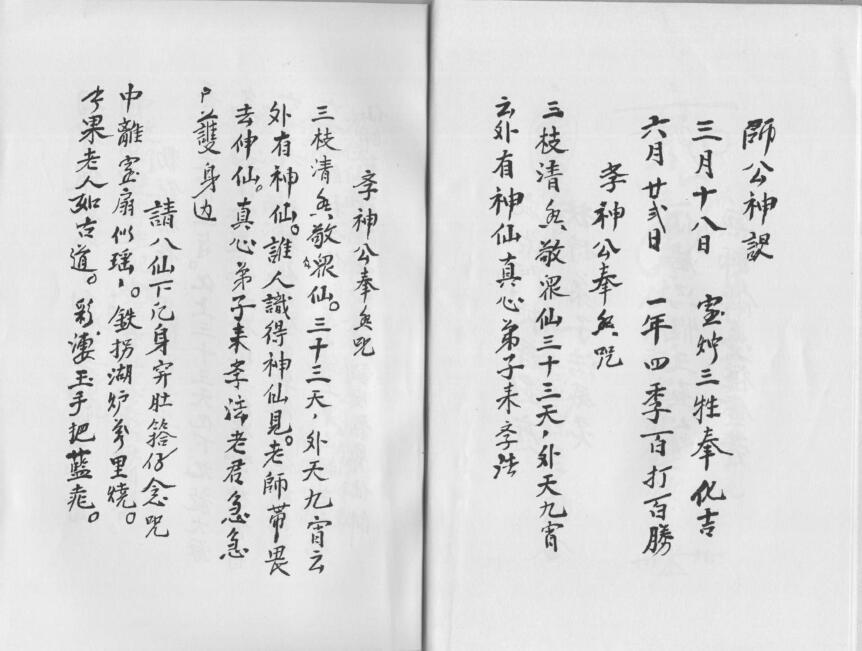 師公神誤
三月十八日 宝炉三牲奉化吉
六月廿弍日 一年四季百打百勝
孝神公奉香咒
三枝清香敬眾仙三十三天，外天九宵
云外有神仙真心弟子来孝法
孝神公奉香咒
三枝清香敬眾仙。三十三天，外天九宵云
外有神仙。誰人識得神仙見。老師帶畏
去伸仙。真心弟子来孝法老君急急
護身边
請八仙下凡身穿肚答仔念咒
中離宝扇似瑶。鉄拐湖炉萬里燒。
果老人如古道。彩淒玉手把藍。